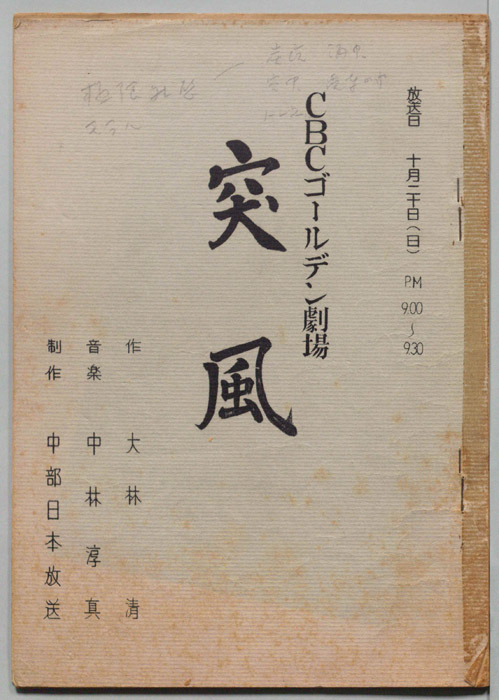 放送日 十月二十日（日） PM 9.00～9.30
CBCゴールデン劇場
突風
作 大林清
音楽 中林淳真
制作 中部日本放送